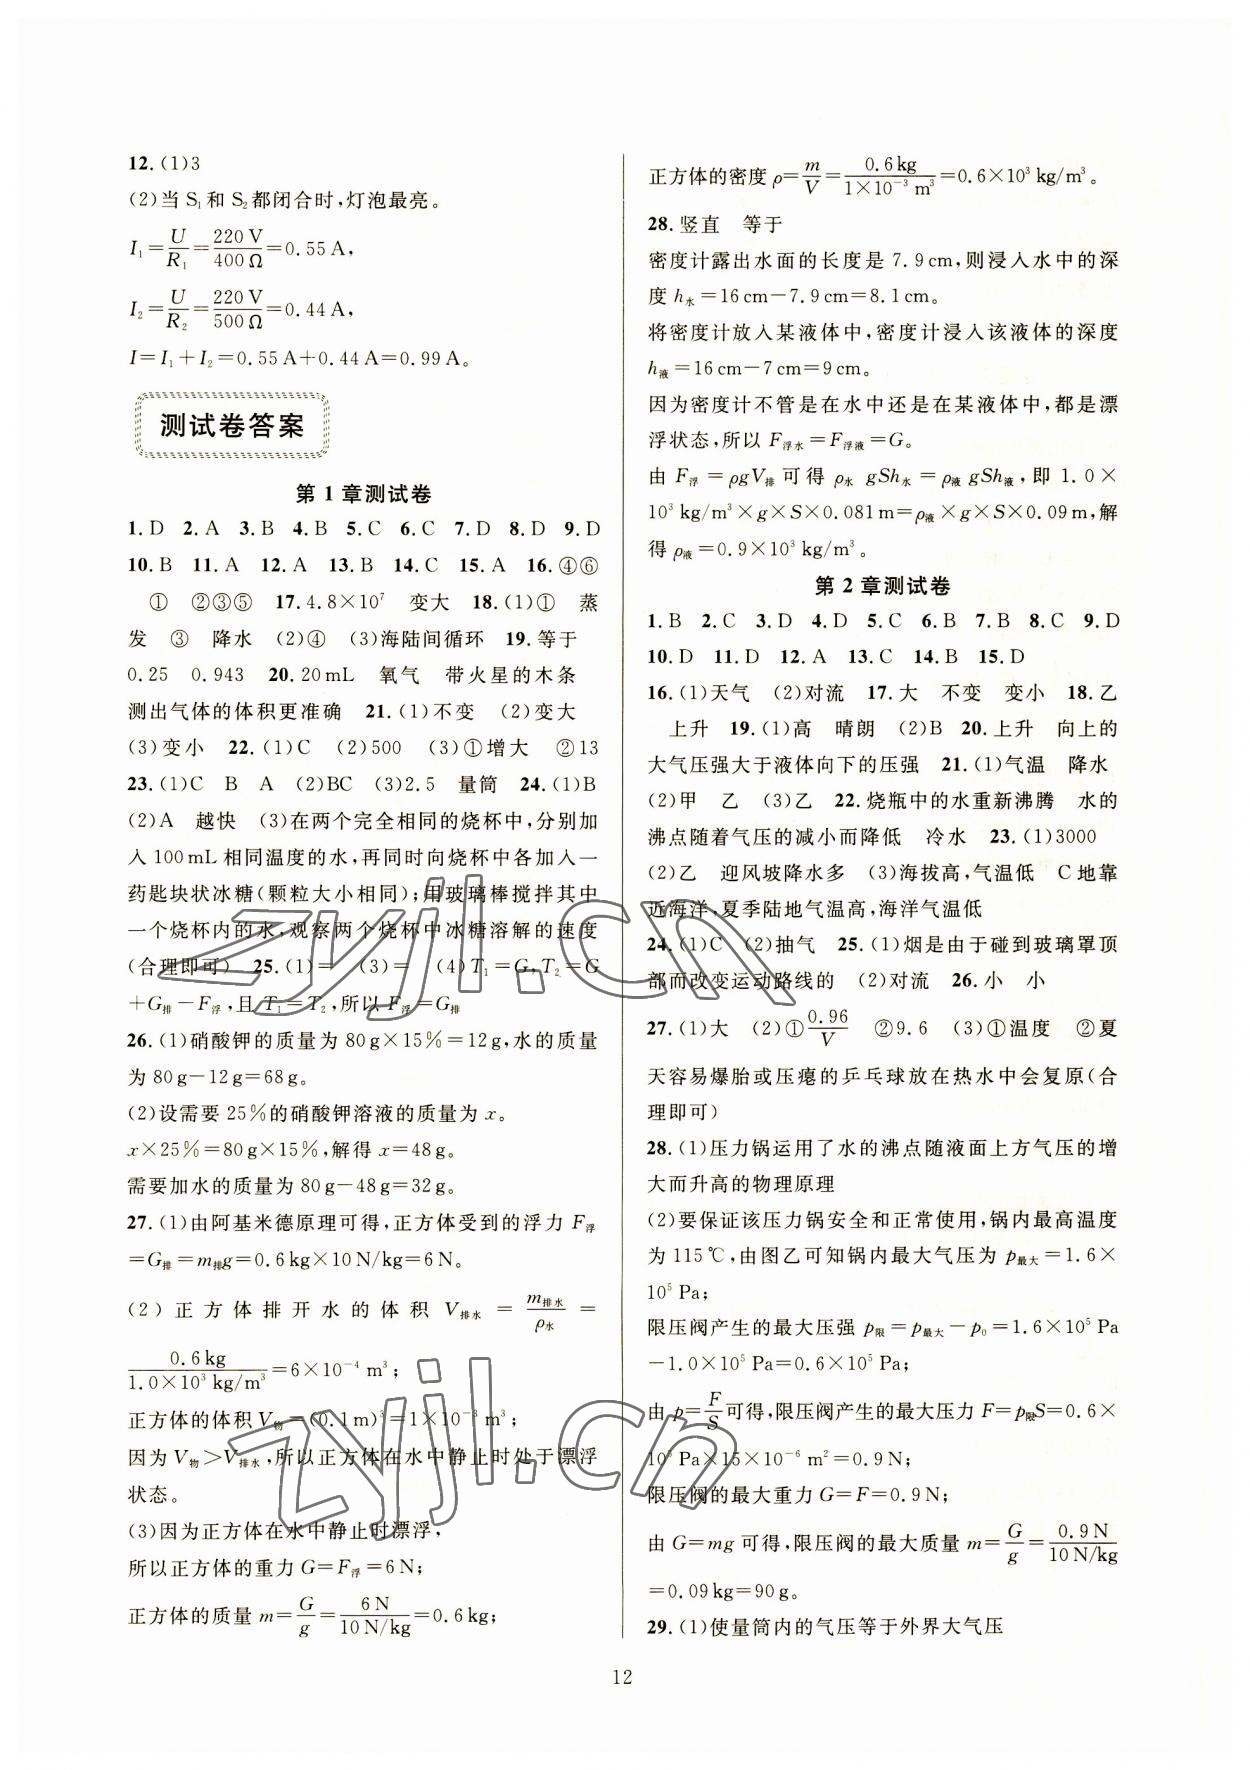 12.(1)3
(2)当 S₁ 和 S₂ 都闭合时,灯泡最亮。
I₁=U/R₁=220 V/400 Ω=0.55 A,
I₂=U/R₂=220 V/500 Ω=0.44 A,
I=I₁+I₂=0.55 A+0.44 A=0.99 A。
测试卷答案
第 1 章测试卷
1. D 2. A 3. B 4. B 5. C 6. C 7. D 8. D 9. D
10. B 11. A 12. A 13. B 14. C 15. A 16. ④⑥
① ②③⑤ 17. 4.8×10⁷ 变大 18.(1)① 蒸
发 ③ 降水 (2)④ (3)海陆间循环 19. 等于
0.25 0.943 20. 20 mL 氧气 带火星的木条
测出气体的体积更准确 21.(1)不变 (2)变大
(3)变小 22.(1)C (2)500 (3)①增大 ②13
23.(1)C B A (2)BC (3)2.5 量筒 24.(1)B
(2)A 越快 (3)在两个完全相同的烧杯中,分别加
入 100 mL 相同温度的水,再同时向烧杯中各加入一
药匙块状冰糖(颗粒大小相同);用玻璃棒搅拌其中
一个烧杯内的水,观察两个烧杯中冰糖溶解的速度
(合理即可) 25.(1)= (3)= (4)T₁=G,T₂=G
+G排−F浮,且 T₁=T₂,所以 F浮=G排
26.(1)硝酸钾的质量为 80 g×15%=12 g,水的质量
为 80 g−12 g=68 g。
(2)设需要 25%的硝酸钾溶液的质量为 x。
x×25%=80 g×15%,解得 x=48 g。
需要加水的质量为 80 g−48 g=32 g。
27.(1)由阿基米德原理可得,正方体受到的浮力 F浮
=G排=m排g=0.6 kg×10 N/kg=6 N。
(2)正方体排开水的体积 V排水=m排水/ρ水=
0.6 kg/1.0×10³ kg/m³=6×10⁻⁴ m³;
正方体的体积 V物=(0.1 m)³=1×10⁻³ m³;
因为 V物>V排水,所以正方体在水中静止时处于漂浮
状态。
(3)因为正方体在水中静止时漂浮,
所以正方体的重力 G=F浮=6 N;
正方体的质量 m=G/g=6 N/10 N/kg=0.6 kg;
正方体的密度 ρ=m/V=0.6 kg/1×10⁻³ m³=0.6×10³ kg/m³。
28. 竖直 等于
密度计露出水面的长度是 7.9 cm,则浸入水中的深
度 h水=16 cm−7.9 cm=8.1 cm。
将密度计放入某液体中,密度计浸入该液体的深度
h液=16 cm−7 cm=9 cm。
因为密度计不管是在水中还是在某液体中,都是漂
浮状态,所以 F浮水=F浮液=G。
由 F浮=ρgV排 可得 ρ水 gSh水=ρ液 gSh液,即 1.0×
10³ kg/m³×g×S×0.081 m=ρ液×g×S×0.09 m,解
得 ρ液=0.9×10³ kg/m³。
第 2 章测试卷
1. B 2. C 3. D 4. D 5. C 6. B 7. B 8. C 9. D
10. D 11. D 12. A 13. C 14. B 15. D
16.(1)天气 (2)对流 17. 大 不变 变小 18. 乙
上升 19.(1)高 晴朗 (2)B 20. 上升 向上的
大气压强大于液体向下的压强 21.(1)气温 降水
(2)甲 乙 (3)乙 22. 烧瓶中的水重新沸腾 水的
沸点随着气压的减小而降低 冷水 23.(1)3000
(2)乙 迎风坡降水多 (3)海拔高,气温低 C 地靠
近海洋,夏季陆地气温高,海洋气温低
24.(1)C (2)抽气 25.(1)烟是由于碰到玻璃罩顶
部而改变运动路线的 (2)对流 26. 小 小
27.(1)大 (2)①0.96/V ②9.6 (3)①温度 ②夏
天容易爆胎或压瘪的乒乓球放在热水中会复原(合
理即可)
28.(1)压力锅运用了水的沸点随液面上方气压的增
大而升高的物理原理
(2)要保证该压力锅安全和正常使用,锅内最高温度
为 115 ℃,由图乙可知锅内最大气压为 p最大=1.6×
10⁵ Pa;
限压阀产生的最大压强 p限=p最大−p₀=1.6×10⁵ Pa
−1.0×10⁵ Pa=0.6×10⁵ Pa;
由 p=F/S可得,限压阀产生的最大压力 F=p限S=0.6×
10⁵ Pa×15×10⁻⁶ m²=0.9 N;
限压阀的最大重力 G=F=0.9 N;
由 G=mg 可得,限压阀的最大质量 m=G/g=0.9 N/10 N/kg
=0.09 kg=90 g。
29.(1)使量筒内的气压等于外界大气压
12
zyjl.cn
zyjl.cn